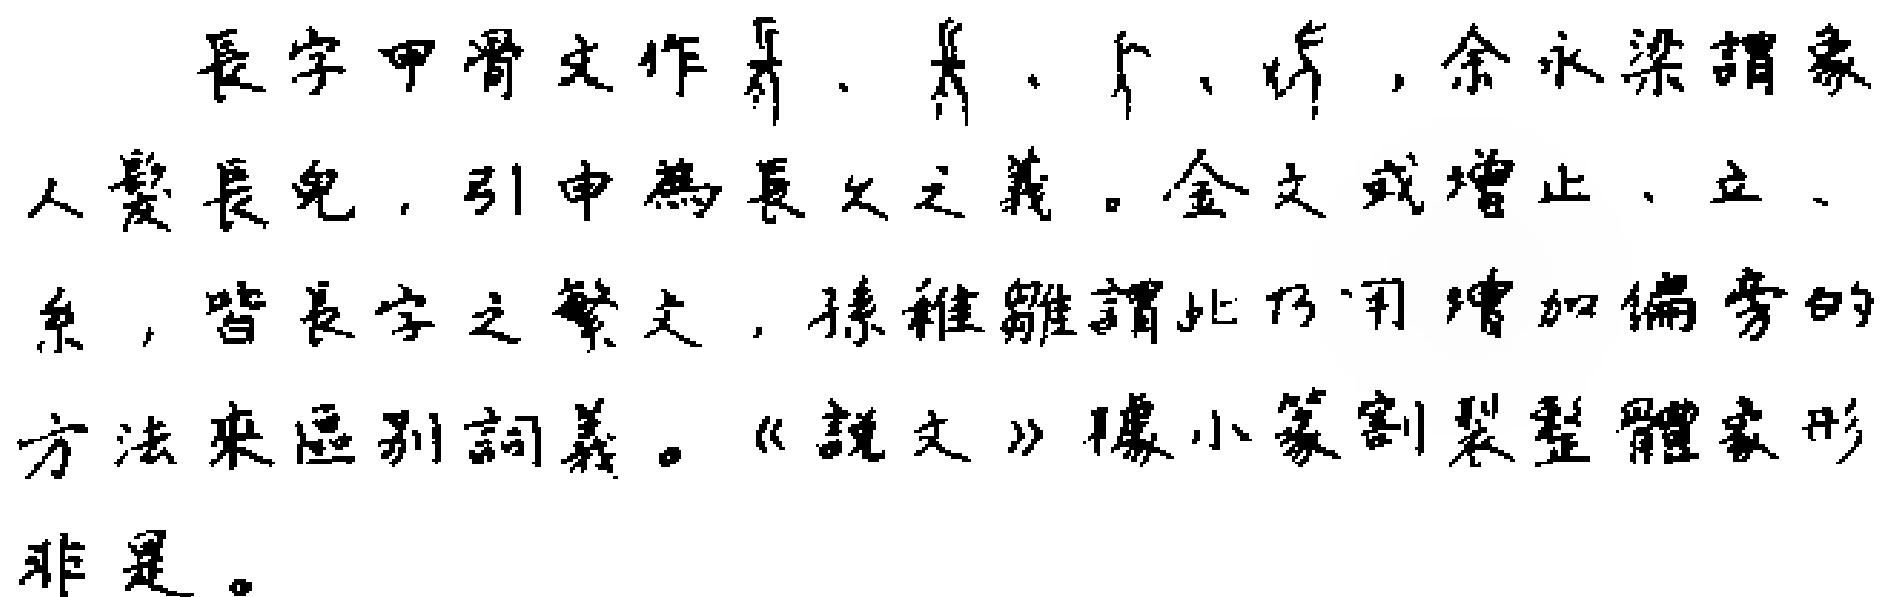 長字甲骨文作、、、，余永梁謂象
人髮長皃，引申為長久之義。金文或增止、立、
糸，皆長字之繁文，孫稚雛謂此乃用增加偏旁的
方法來區別詞義。《說文》據小篆割裂整體象形
非是。